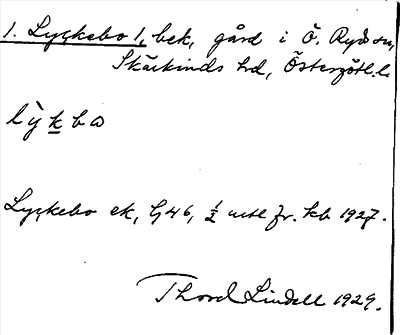 1. Lyckebo 1, bek, gård i Ö. Ryd sn,
Skärkinds hd, Östergötl. l.
lỳkba
Lyckebo ek, G46, ½ mtl fr. kb 1927.
Thord Lindell 1929.